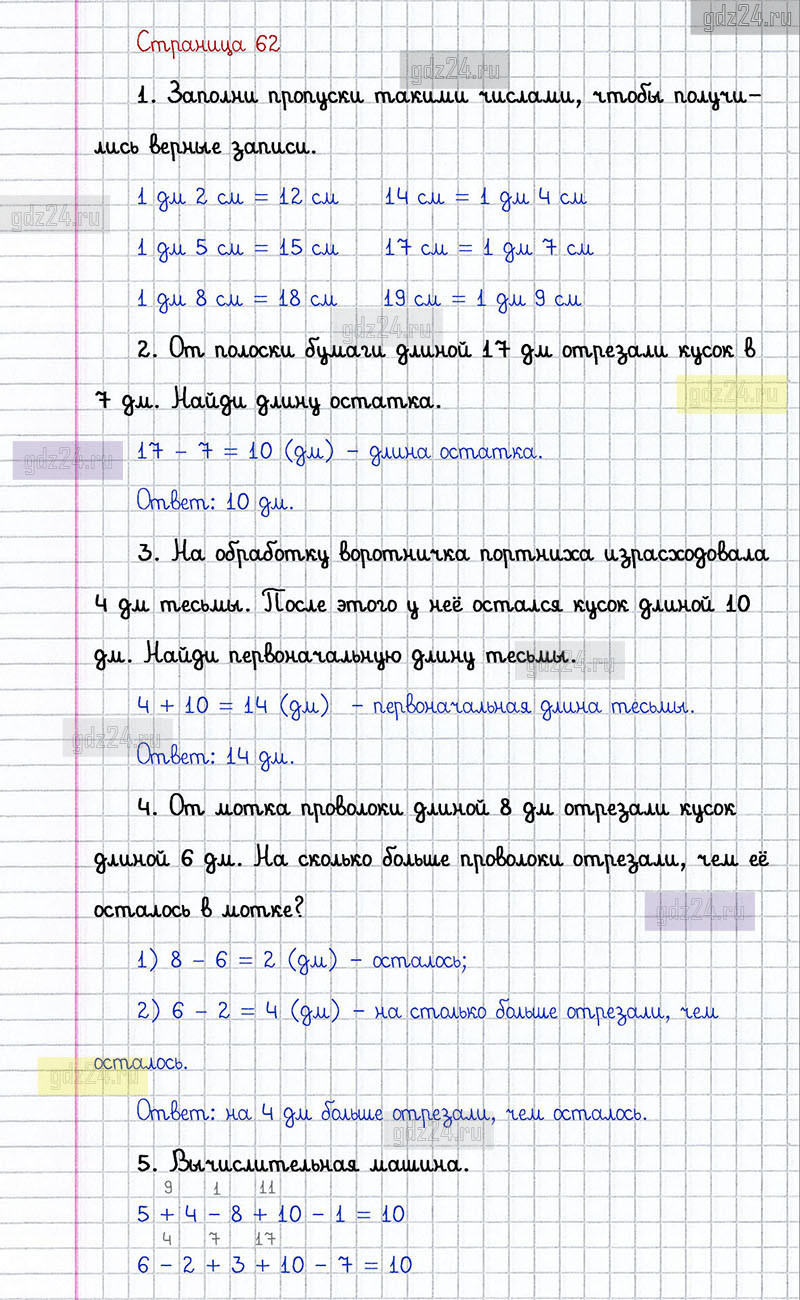 gdz24.ru
Страница 62
gdz24.ru
1. Заполни пропуски такими числами, чтобы получи-
лись верные записи.
1 дм 2 см = 12 см 14 см = 1 дм 4 см
gdz24.ru
1 дм 5 см = 15 см 17 см = 1 дм 7 см
1 дм 8 см = 18 см 19 см = 1 дм 9 см
gdz24.ru
2. От полоски бумаги длиной 17 дм отрезали кусок в
gdz24.ru
7 дм. Найди длину остатка.
17 - 7 = 10 (дм) - длина остатка.
gdz24.ru
Ответ: 10 дм.
3. На обработку воротничка портниха израсходовала
4 дм тесьмы. После этого у неё остался кусок длиной 10
дм. Найди первоначальную длину тесьмы.
gdz24.ru
4 + 10 = 14 (дм) - первоначальная длина тесьмы.
gdz24.ru
Ответ: 14 дм.
4. От мотка проволоки длиной 8 дм отрезали кусок
длиной 6 дм. На сколько больше проволоки отрезали, чем её
осталось в мотке?
gdz24.ru
1) 8 - 6 = 2 (дм) - осталось;
2) 6 - 2 = 4 (дм) - на столько больше отрезали, чем
осталось.
gdz24.ru
Ответ: на 4 дм больше отрезали, чем осталось.
gdz24.ru
5. Вычислительная машина.
9 1 11
5 + 4 - 8 + 10 - 1 = 10
4 7 17
6 - 2 + 3 + 10 - 7 = 10